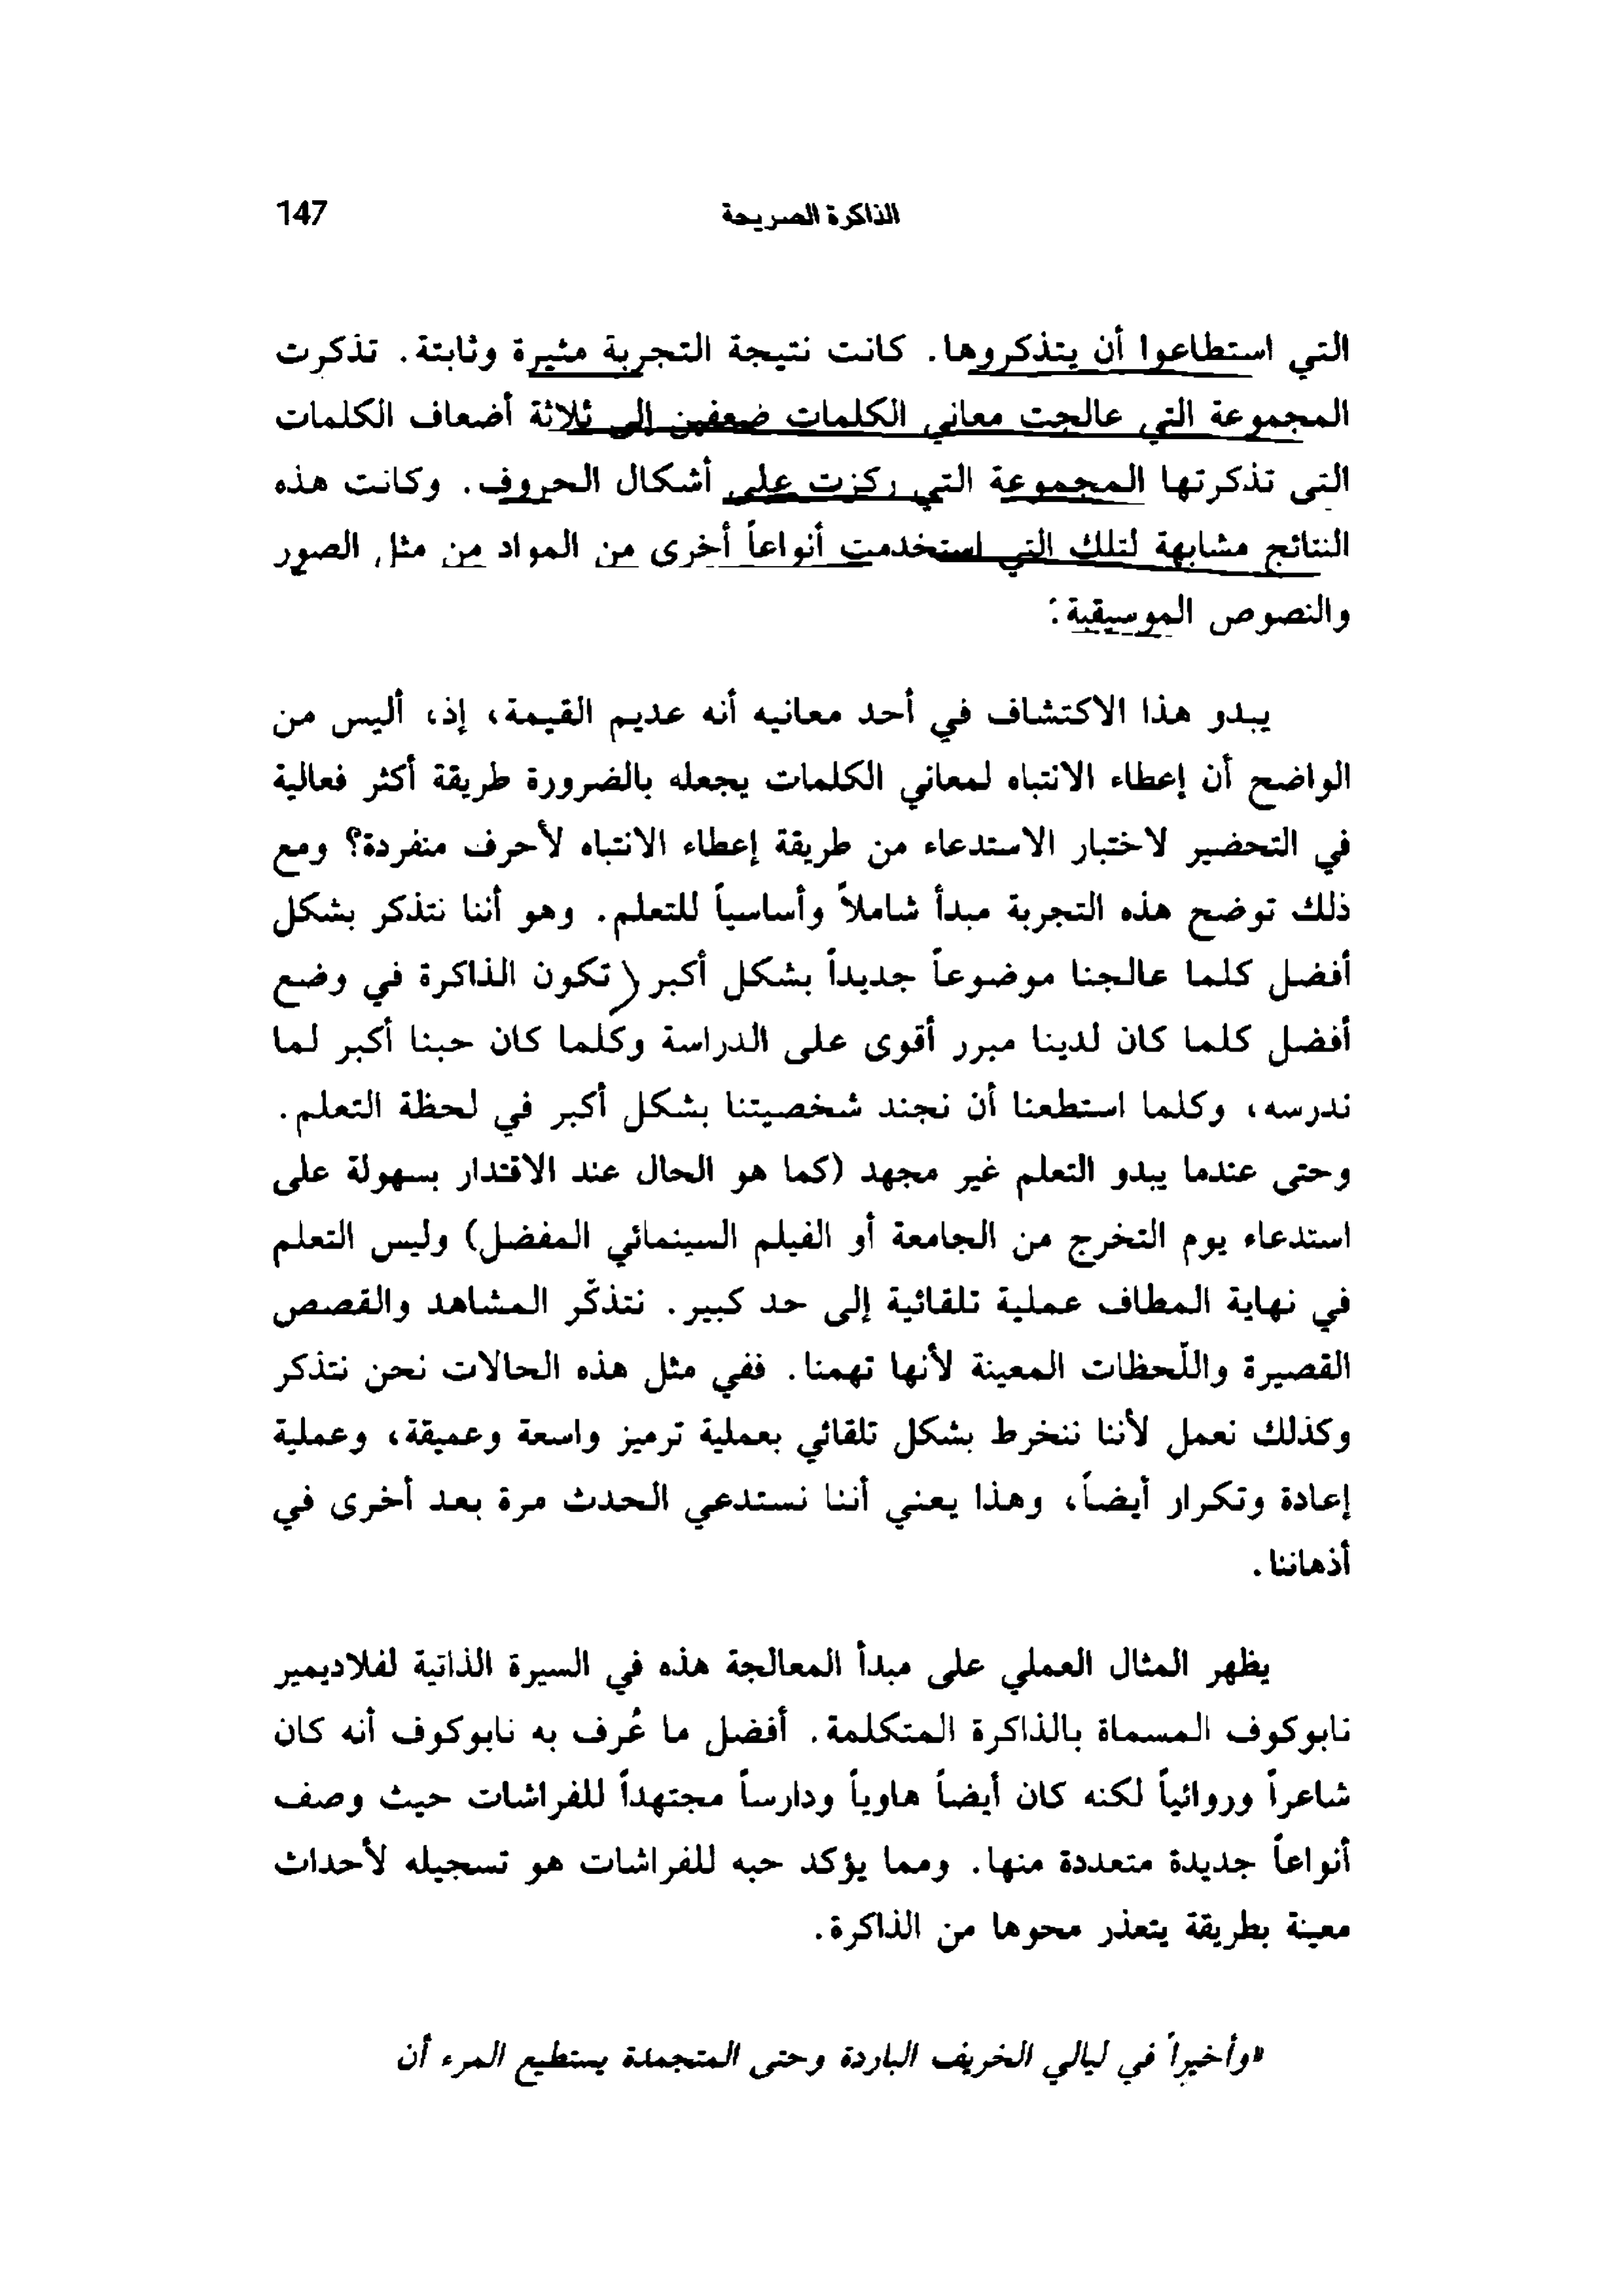 الذاكرة الصريحة 147
التي استطاعوا أن يتذكروها. كانت نتيجة التجربة مثيرة وثابتة. تذكرت
المجموعة التي عالجت معاني الكلمات ضعفين إلى ثلاثة أضعاف الكلمات
التي تذكرتها المجموعة التي ركزت على أشكال الحروف. وكانت هذه
النتائج مشابهة لتلك التي استخدمت أنواعاً أخرى من المواد من مثل الصور
والنصوص الموسيقية:
يبدو هذا الاكتشاف في أحد معانيه أنه عديم القيمة، إذ، أليس من
الواضح أن إعطاء الانتباه لمعاني الكلمات يجعله بالضرورة طريقة أكثر فعالية
في التحضير لاختبار الاستدعاء من طريقة إعطاء الانتباه لأحرف منفردة؟ ومع
ذلك توضح هذه التجربة مبدأ شاملاً وأساسياً للتعلم. وهو أننا نتذكر بشكل
أفضل كلما عالجنا موضوعاً جديداً بشكل أكبر (تكون الذاكرة في وضع
أفضل كلما كان لدينا مبرر أقوى على الدراسة وكلما كان حبنا أكبر لما
ندرسه، وكلما استطعنا أن نجند شخصيتنا بشكل أكبر في لحظة التعلم.
وحتى عندما يبدو التعلم غير مجهد (كما هو الحال عند الاقتدار بسهولة على
استدعاء يوم التخرج من الجامعة أو الفيلم السينمائي المفضل) وليس التعلم
في نهاية المطاف عملية تلقائية إلى حد كبير. نتذكّر المشاهد والقصص
القصيرة واللّحظات المعينة لأنها تهمنا. ففي مثل هذه الحالات نحن نتذكر
وكذلك نعمل لأننا ننخرط بشكل تلقائي بعملية ترميز واسعة وعميقة، وعملية
إعادة وتكرار أيضاً، وهذا يعني أننا نستدعي الحدث مرة بعد أخرى في
أذهاننا.
يظهر المثال العملي على مبدأ المعالجة هذه في السيرة الذاتية لفلاديمير
نابوكوف المسماة بالذاكرة المتكلمة. أفضل ما عُرف به نابوكوف أنه كان
شاعراً وروائياً لكنه كان أيضاً هاوياً ودارساً مجتهداً للفراشات حيث وصف
أنواعاً جديدة متعددة منها. ومما يؤكد حبه للفراشات هو تسجيله لأحداث
معينة بطريقة يتعذر محوها من الذاكرة.
«وأخيراً في ليالي الخريف الباردة وحتى المتجمدة يستطيع المرء أن